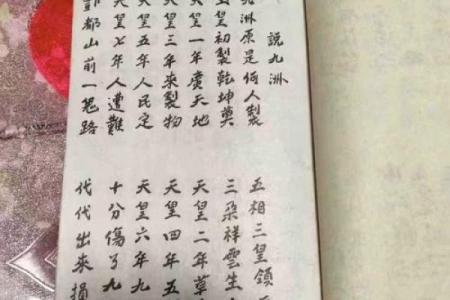 說九洲
洲原是何人製
五相三皇領
皇初製乾坤奠
三朵祥雲生
天皇一年廣天地
天皇二年草
天皇三年來製物
天皇四年五
天皇五年人民定
天皇六年九
天皇七年人遭難
十分傷了九
都山前一冤路
代代出來損